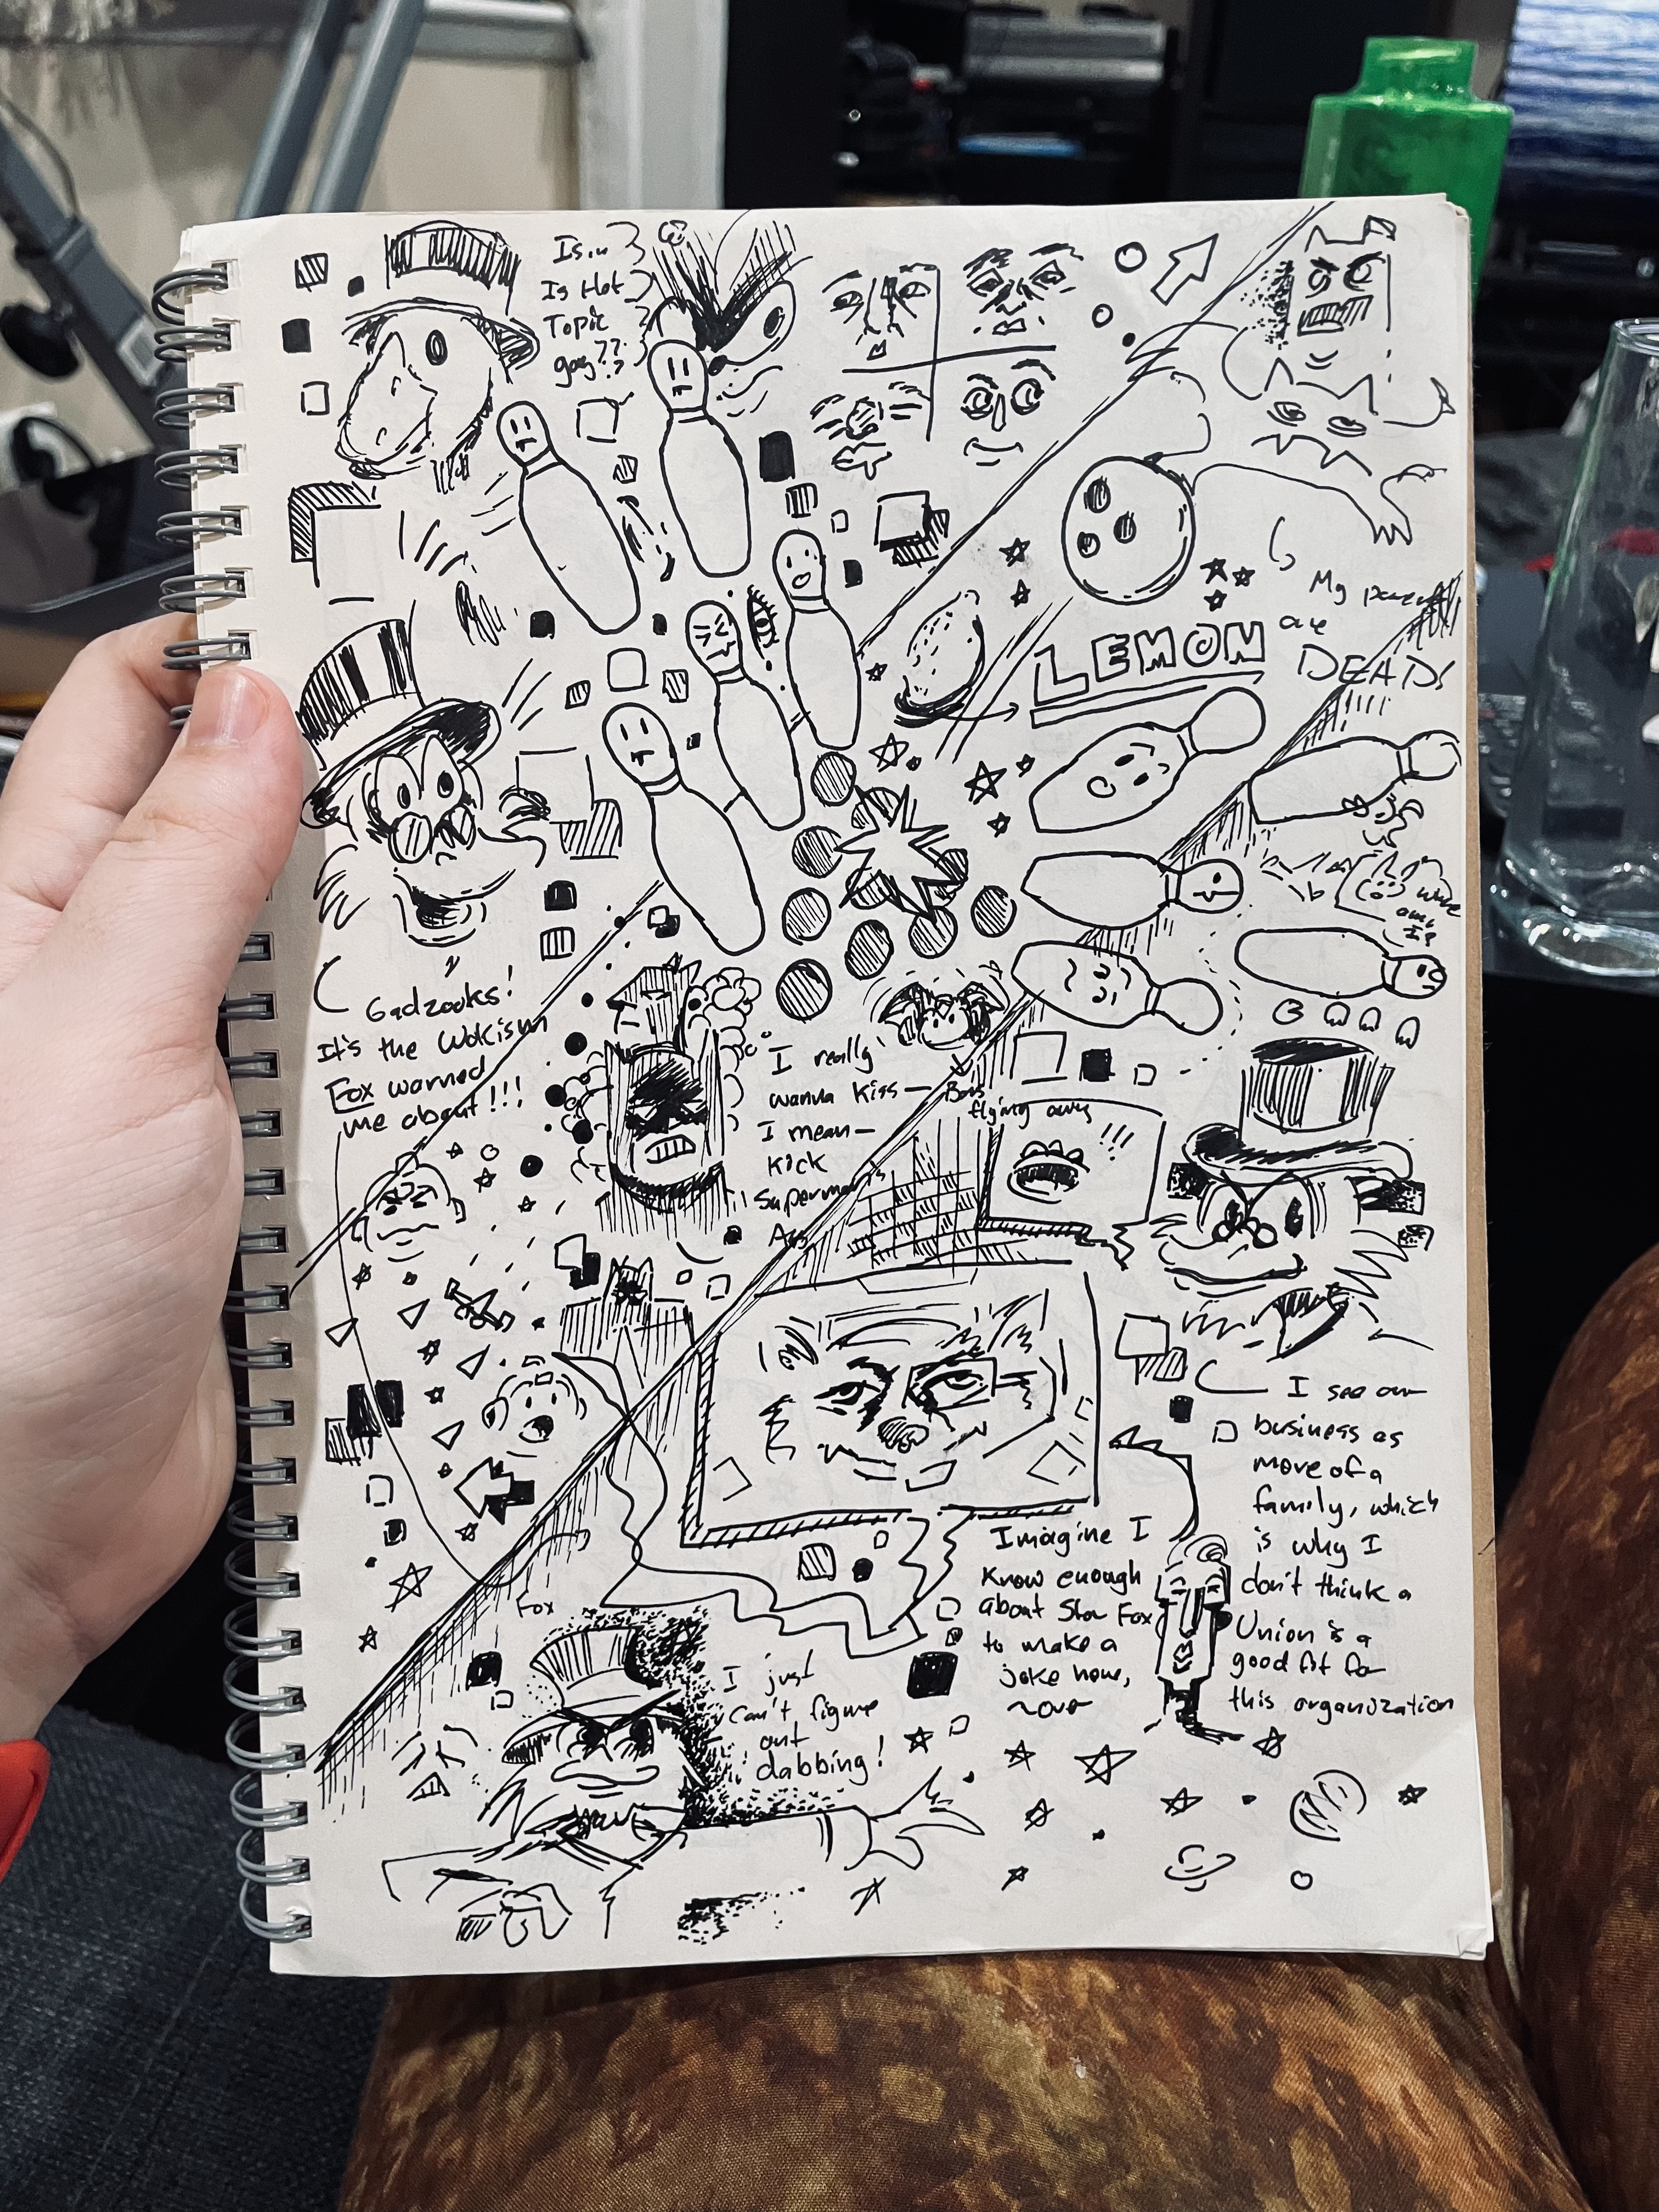 Is.. u
Is Hot
Topic
gay??
My parents
are
DEAD!
LEMON
Where
am
I?
Gadzooks!
It's the Wokism
Fox warned
me about!!!
I really
wanna kiss—
I mean—
Kick
Superman's
Ass
Bats
flying away
!!!
I see our
business as
more of a
family, which
is why I
don't think a
Union is a
good fit for
this organization
Imagine I
Know enough
about Star Fox
to make a
joke here,
~over
Fox
I just
Can't figure
out
dabbing!